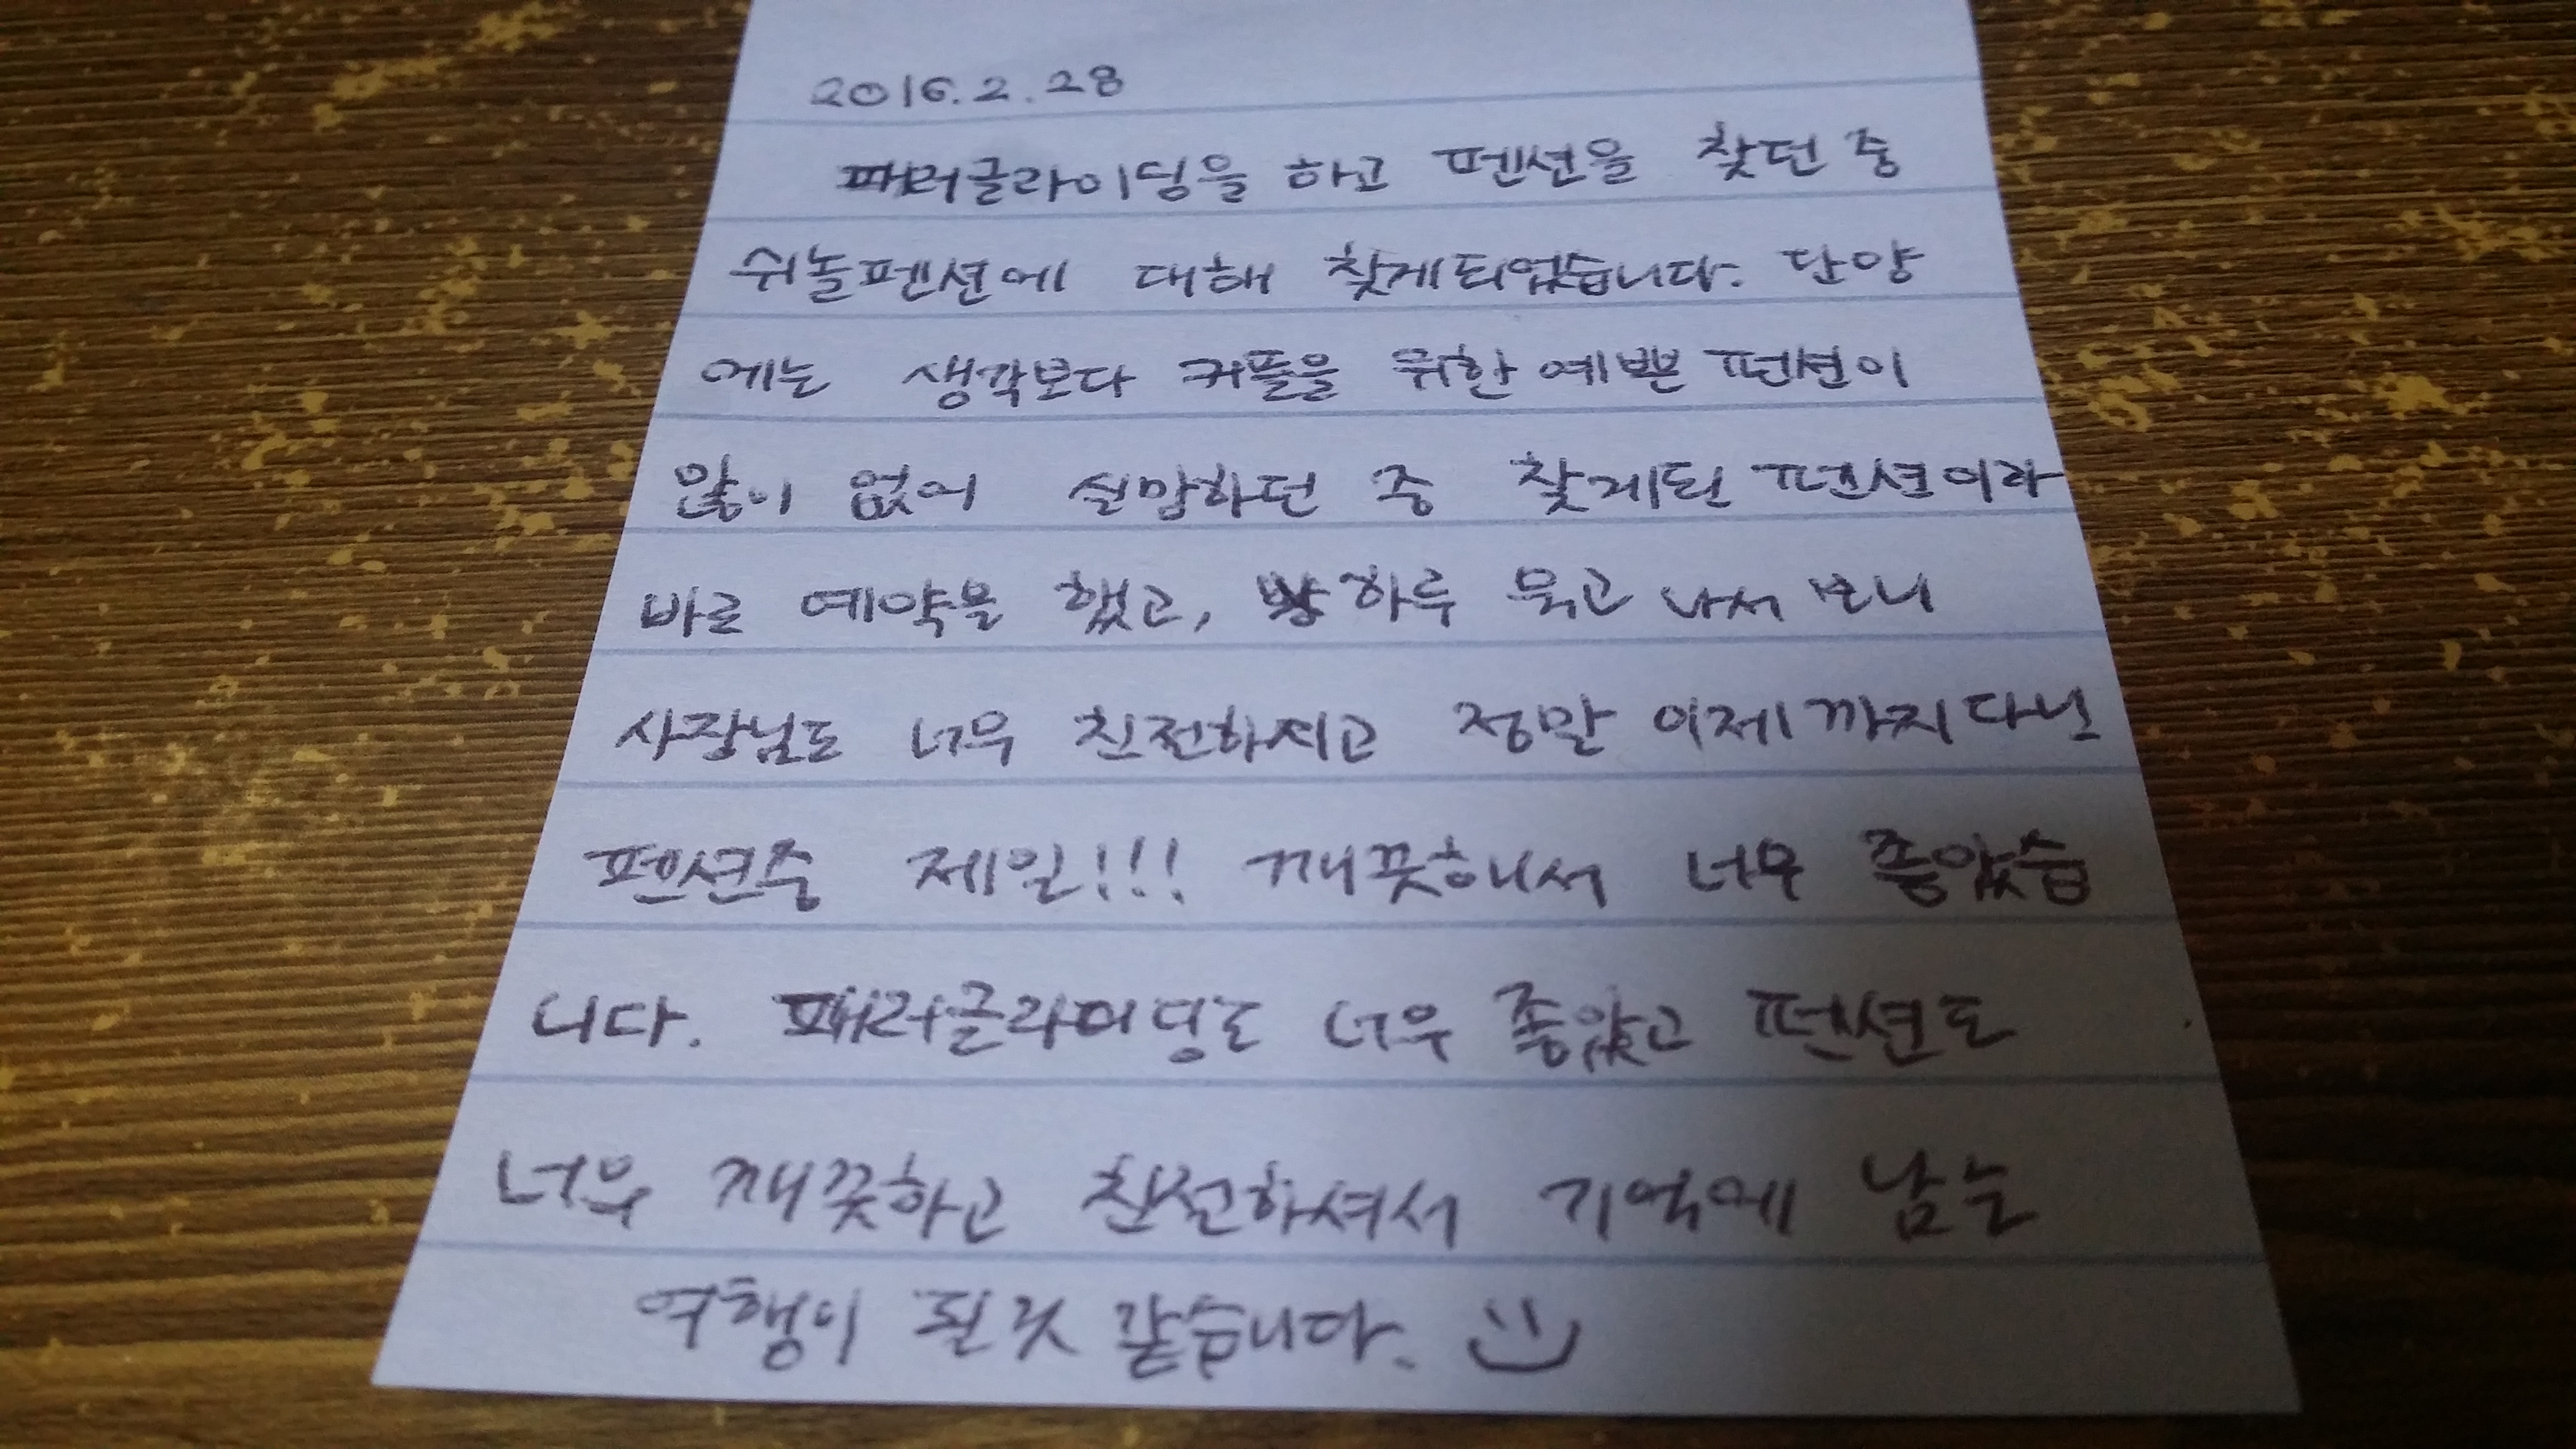 2016.2.28
패러글라이딩을 하고 펜션을 찾던 중
쉬놀펜션에 대해 찾게되었습니다. 단양
에는 생각보다 커플을 위한 예쁜 펜션이
많이 없어 실망하던 중 찾게된 펜션이라
바로 예약을 했고, 하루 묵고 나서 보니
사장님도 너무 친절하시고 정말 이제까지 다닌
펜션중 제일!!! 깨끗해서 너무 좋았습
니다. 패러글라이딩도 너무 좋았고 펜션도
너무 깨끗하고 친절하셔서 기억에 남는
여행이 될것 같습니다.